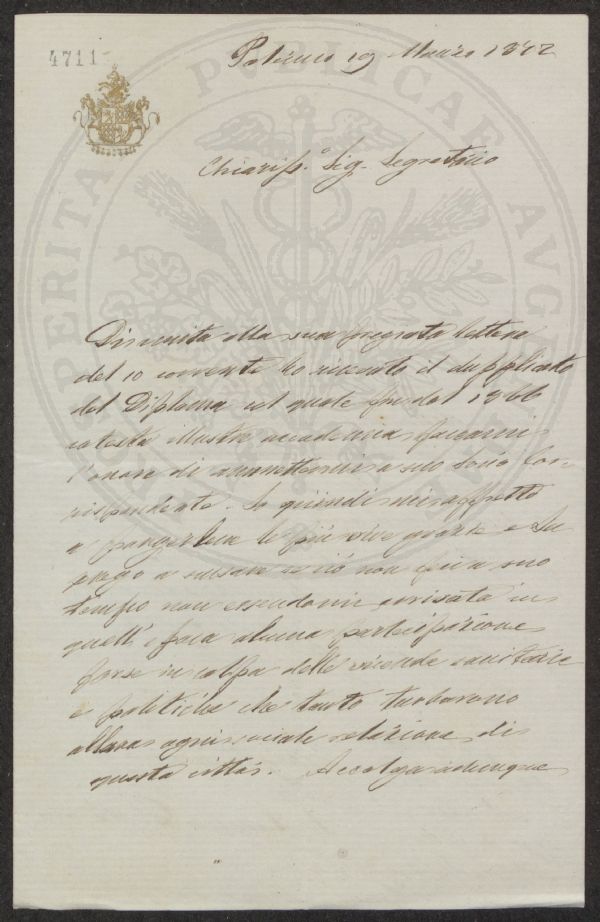 4711
Palermo 19 Marzo 1872
Chiariss.o Sig. Segretario
Dirimpetto alla sua pregiata lettera
del 10 corrente ho ricevuto il dupplicato
del Diploma col quale fin dal 1866
cotesta illustre accademia faceami
l'onore di ammettermi a suo Socio Cor-
rispondente. Io quindi mi affretto
a porgerlene le più vive grazie e La
prego a scusare se ciò non feci a suo
tempo non essendomi arrivata in
quell'epoca alcuna partecipazione
forse in colpa delle vicende sanitarie
e politiche che tanto turbarono
allora ogni sociale relazione di
questa città. Accolga adunque
PUBLICAE
AVG
PERITA